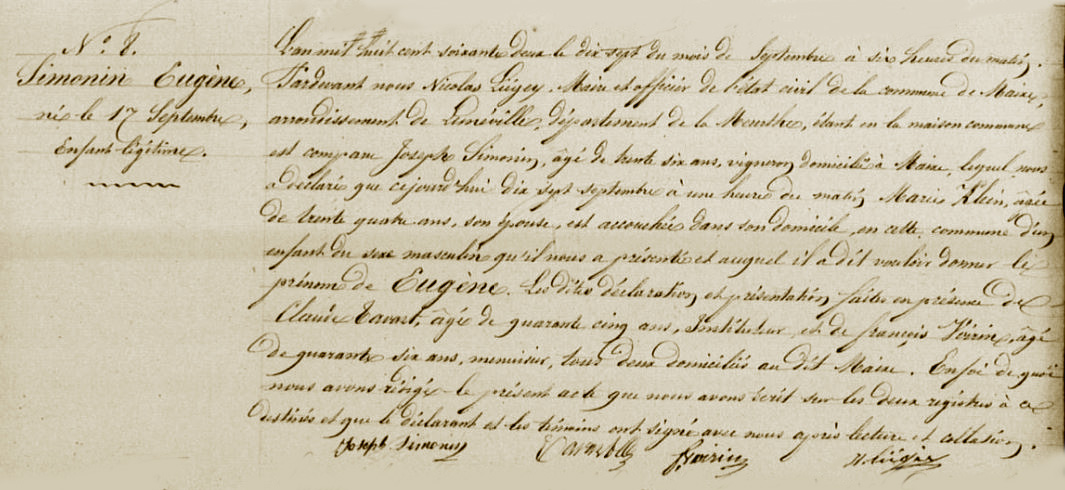 N.º 8.
Simonin Eugène,
né le 17 Septembre,
Enfant légitime.
L'an mil huit cent soixante deux le dix sept du mois de Septembre à six heures du matin.
Pardevant nous Nicolas Liégey, Maire et officier de l'état civil de la commune de Maixe,
arrondissement de Lunéville, département de la Meurthe, étant en la maison commune
est comparu Joseph Simonin, âgé de trente six ans, vigneron domicilié à Maixe, lequel nous
a déclaré que cejourd'hui dix sept septembre à une heure du matin Marie Klein, âgée
de trente quatre ans, son épouse, est accouchée dans son domicile, en cette commune d'un
enfant du sexe masculin qu'il nous a présenté et auquel il a dit vouloir donner le
prénom de Eugène. Les dites déclaration et présentation faites en présence de
Claude, âgé de quarante cinq ans, Instituteur, et de françois Voirin, âgé
de quarante six ans, menuisier, tous deux domiciliés au dit Maixe. En foi de quoi
nous avons rédigé le présent acte que nous avons écrit sur les deux registres à ce
destinés et que le déclarant et les témoins ont signé avec nous après lecture et collation.
Joseph Simonin fVoirin N. Liégey